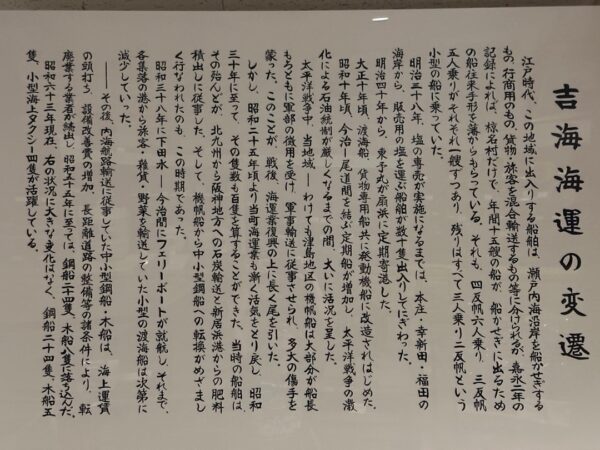 吉海海運の変遷
江戸時代、この地域に出入りする船舶は、瀬戸内海沿岸を船かせぎする
もの、行商用のもの、貨物・旅客を混合輸送するもの等に分けられるが、嘉永二年の
記録によれば、椋名村だけで、年間十五艘の船が、船かせぎに出るため
の船往来手形を藩からもらっている。それも、四反帆六人乗り、三反帆
五人乗りがそれぞれ一艘ずつあり、残りはすべて三人乗り二反帆という
小型の船に乗っていた。
明治三十八年、塩の専売が実施になるまでは、本庄・幸新田・福田の
海岸から、販売用の塩を運ぶ船舶が数十隻出入りしてにぎわった。
明治四十年から、東予丸が扇浜に定期寄港した。
大正十年頃、渡海船、貨物専用船共に発動機船に改造されはじめた。
昭和十年頃、今治―尾道間を結ぶ定期船が増加し、太平洋戦争の激
化による石油統制が厳しくなるまでの間、大いに活況を呈した。
太平洋戦争中、当地域――わけても津島地区の機帆船は大部分が船長
もろともに軍部の徴用を受け、軍事輸送に従事させられ、多大の傷手を
蒙った。このことが、戦後、海運業復興の上に長く尾を引いた。
しかし、昭和二十五年頃より当町海運業も漸く活気をとり戻し、昭和
三十年に至って、その隻数も百隻を算することができた。当時の船舶は、
その殆んどが、北九州から阪神地方への石炭輸送と新居浜港からの肥料
積出しに従事した。そして、機帆船から中小型鋼船への転換がめざまし
く行なわれたのも、この時期であった。
昭和三十八年に下田水―今治間にフェリーボートが就航し、それまで、
各集落の港から旅客・雑貨・野菜を輸送していた小型の渡海船は次第に
減少していった。
――その後、内海航路輸送に従事していた中小型鋼船・木船は、海上運賃
の頭打ち、設備改善費の増加、長距離道路の整備等の諸条件により、転
廃業する業者が続出し、昭和五十五年に至では、鋼船二十四隻、木船八隻に落ち込んだ。
昭和六十三年現在、右の状況に大きな変化はなく、鋼船二十四隻、木船五
隻、小型海上タクシー四隻が活躍している。